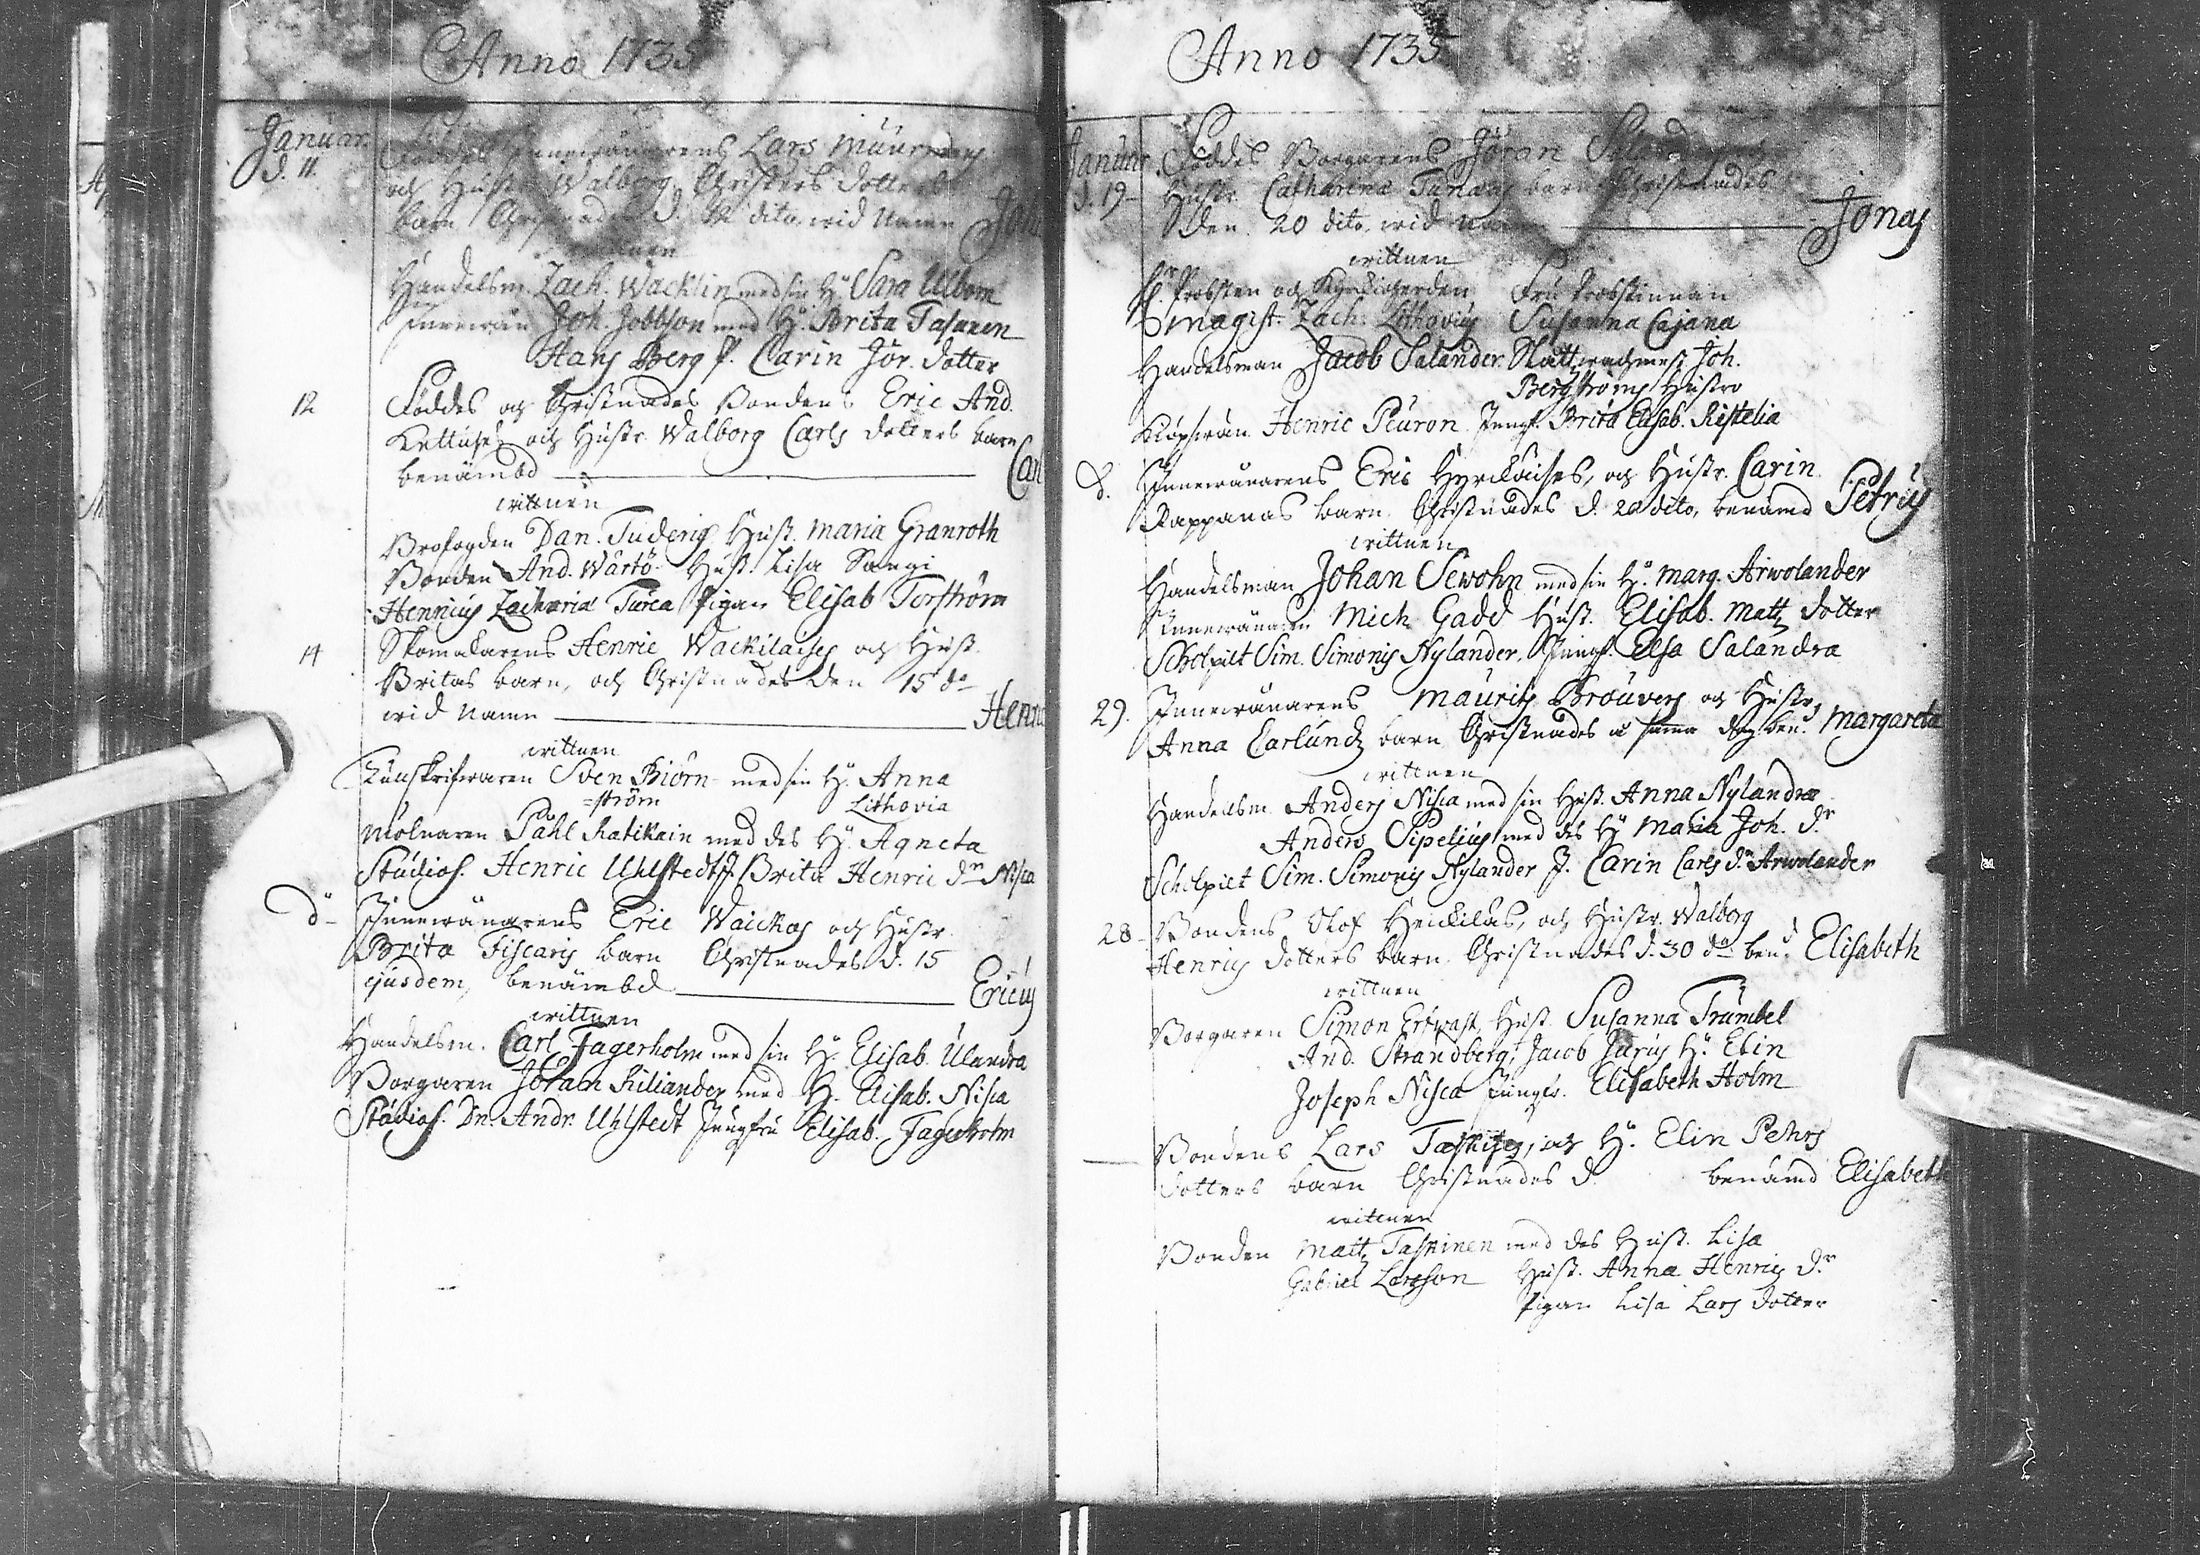 Anno 1735
Januar. Föddes Innewånarens Lars Muurmans
d. 11. och Hustr. Walborg Christers dotters
barn Christnades d. 12 dito, wid namn
wittnen
Handelsm. Zach. Wacklin med sin H. Sara Ulbom
Innewån. Joh. Jobbson med H. Brita Tasanen
Hans Berg P. Carin Jör. dotter
12 Föddes och Christnades Bondens Eric And.
och Hustr. Walborg Carls dotters barn
benämbd Carl
wittnen
Brofogden Dan. Tuderus Hust. Maria Granroth
Bonden And. Wärtö Hust. Lisa Sangi
Henricus Zachariæ Turca Pigan Elisab Torström
14 Skomakarens Henric Wackilaises och Hust.
Britas barn, och Christnades den 15 do
wid namn Henric
wittnen
Sven Biörn- med sin H. Anna
=ström Lithovia
Molnaren Påhl Ratikain med des H. Agneta
Studios. Henric Uhlstedt J. Brita Henric dr Nisca
do Innewånarens Eric Waickas och Hustr.
Brita Fiscaris barn Christnades d. 15
ejusdem, benämbd Ericus
wittnen
Handelsm. Carl Fagerholm med sin H. Elisab. Ulandra
Borgaren Jöran Kiliander med H. Elisab. Nisca
Studios. Dn. Andr. Uhlstedt Jungfru Elisab. Fagerholm
Anno 1735
Januar. Föddes Borgarens Jöran
d. 19 Hustr. Catharina barn Christnades
den 20 dito, wid namn Jonas
wittnen
H. Probsten och Kyrkioherden Fru Probstinnan
Magist. Zach. Lithovius Susanna Cajana
Handelsman Jacob Salander. Joh.
Bergströms Hustro
Henric Peuron. Jungf. Brita Elisab. Ristelia
d. Innewånarens Eric Hyrckäises, och Hustr. Carin
Rappanas barn. Christnades d. 20 dito, benämd Petrus
wittnen
Handelsman Johan Sewohn med sin H. Marg. Arwolander
Innewånaren Mich. Gadd Hust. Elisab. Matts dotter
Scholpilt Sim. Simonis Nylander. Jungf. Elsa Salandra
29. Innewånarens Maurits Brouwers och Hustr.
Anna Carlunds barn Christnades å samma dag ben. Margareta
wittnen
Handelsm. Anders Nisca med sin Hust. Anna Nylandræ
Anders Sipelius med des H. Maria Joh. dr
Scholpilt Sim. Simonis Nylander J. Carin Carls dr Arwolander
28 Bondens Olof Heickilas, och Hustr. Walborg
Henrics dotters barn. Christnades d. 30 do ben.d Elisabeth
wittnen
Borgaren Simon Erfwast, Hust. Susanna Trumbel
And. Strandberg, Jacob Jurus H. Elin
Joseph Nisca Jungfr. Elisabeth Holm
Bondens Lars och H. Elin Pehrs
dotters barn Christnades d. benämd Elisabeth
wittnen
Bonden Matts Taskinen med des Hust. Lisa
Gabriel Larsson Hust. Anna Henrics dr
Pigan Lisa Lars dotter